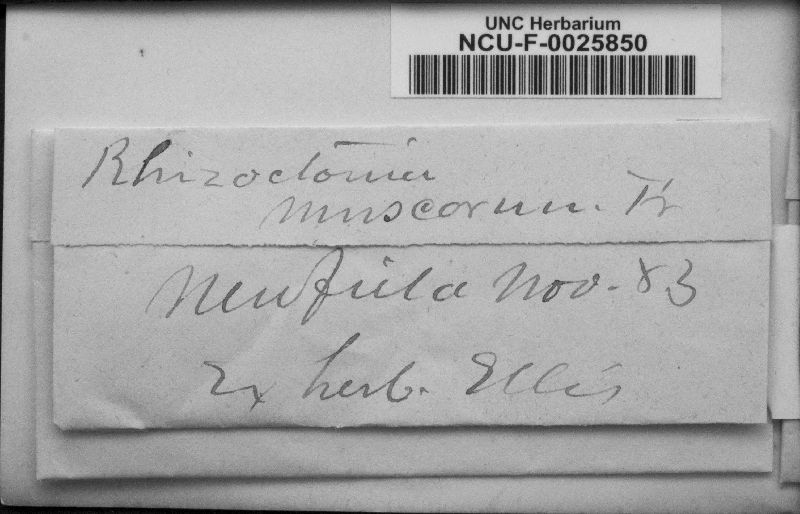 UNC Herbarium
NCU-F-0025850
Rhizoctonia
muscorum. Fr
Newfield Nov. 83
Ex herb. Ellis